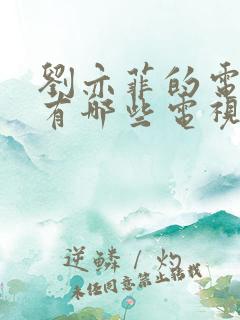 劉亦菲的電
有哪些電視
逆鱗/灼
未经同意禁止转载